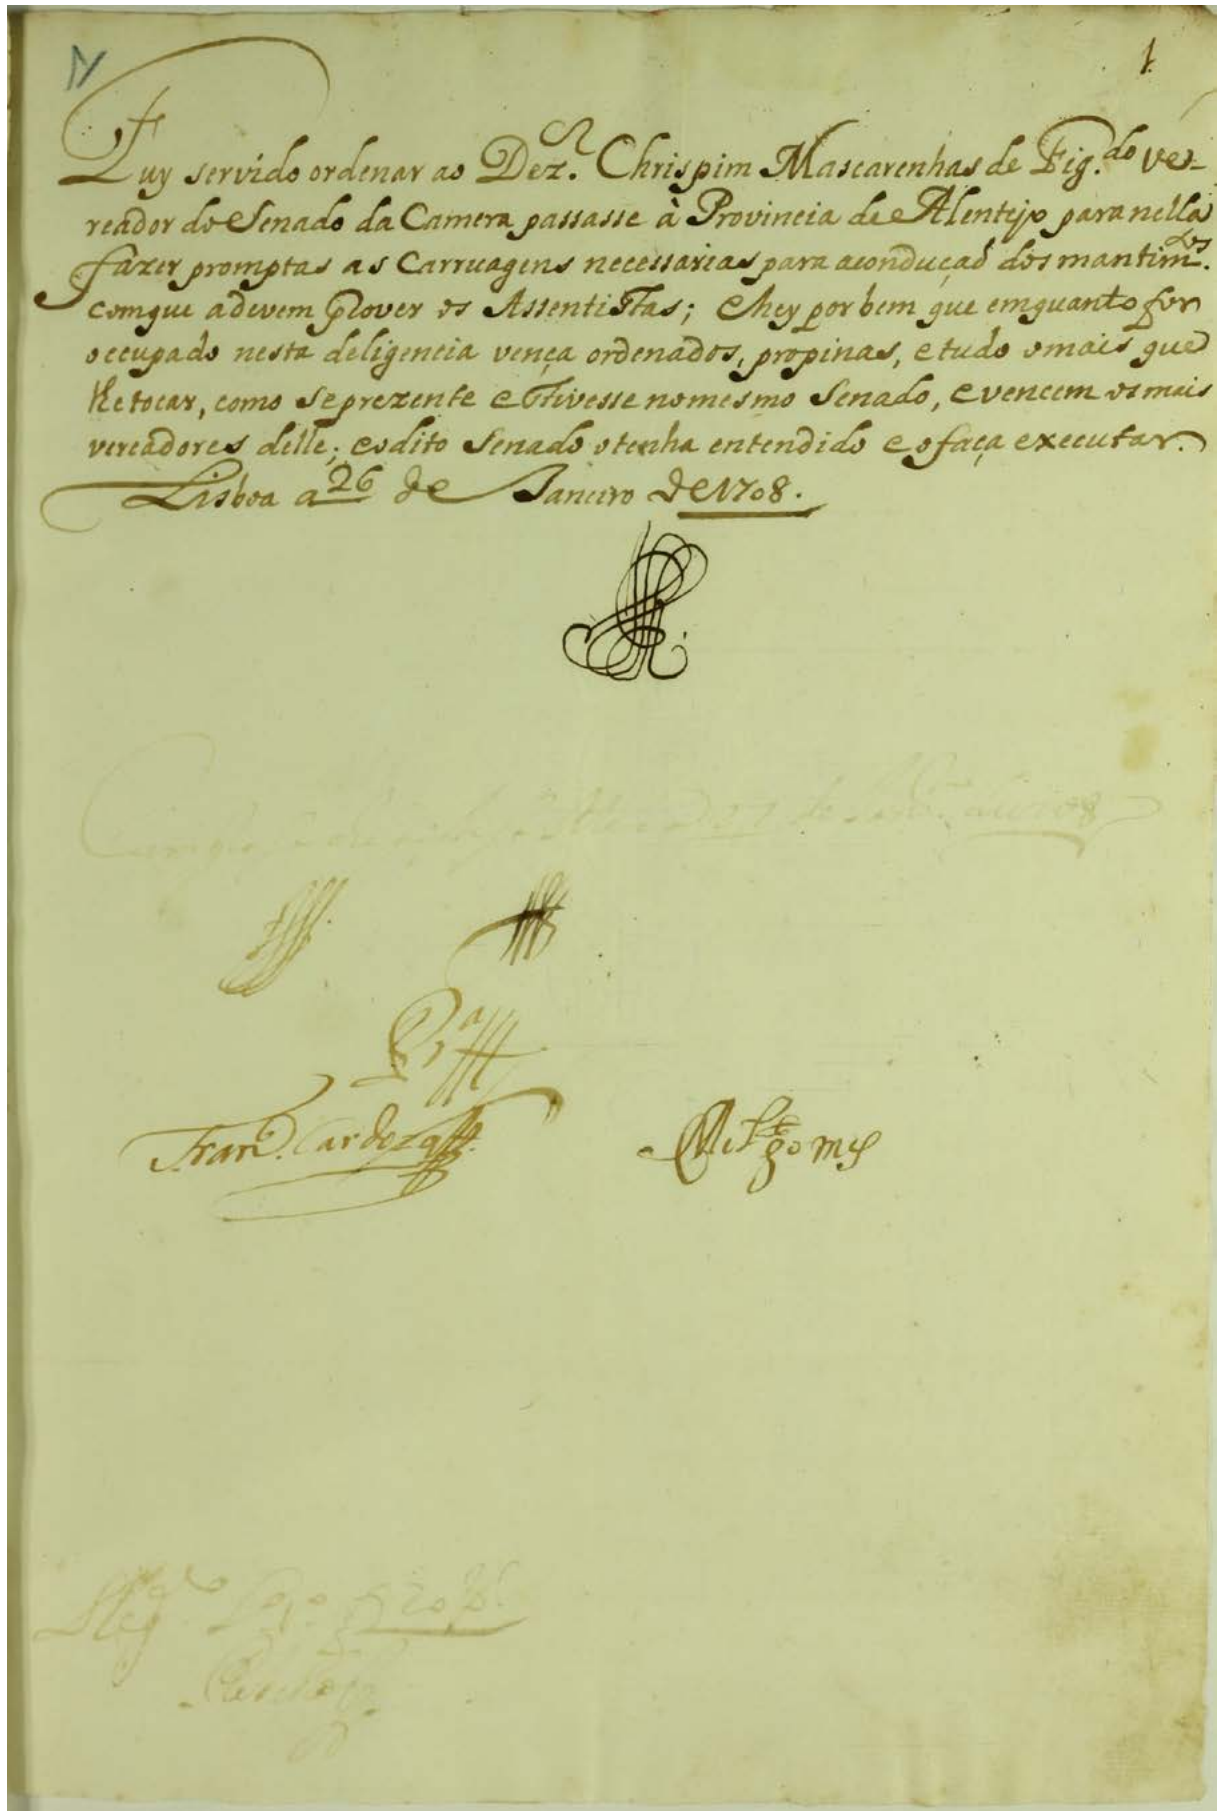 1
Fuy servido ordenar ao Dez.or Chrispim Mascarenhas de Fig.do Ve-
reador do Senado da Camera passasse à Provincia de Alentejo para nella
fazer promptas as Carruagens necessarias para a conduçaõ dos mantim.tos
com que a devem prover os Assentistas; e hey por bem que emquanto for
occupado nesta deligencia vença ordenados, propinas, e tudo o mais que
lhe tocar, como se prezente estivesse no mesmo Senado, e vencem os mais
vereadores delle; e o dito Senado o tenha entendido e o faça executar.
Lisboa a 26 de Janeiro de 1708.
27 de Jan.ro de 1708
Fran.co Cardozo
gomes
Reg.do